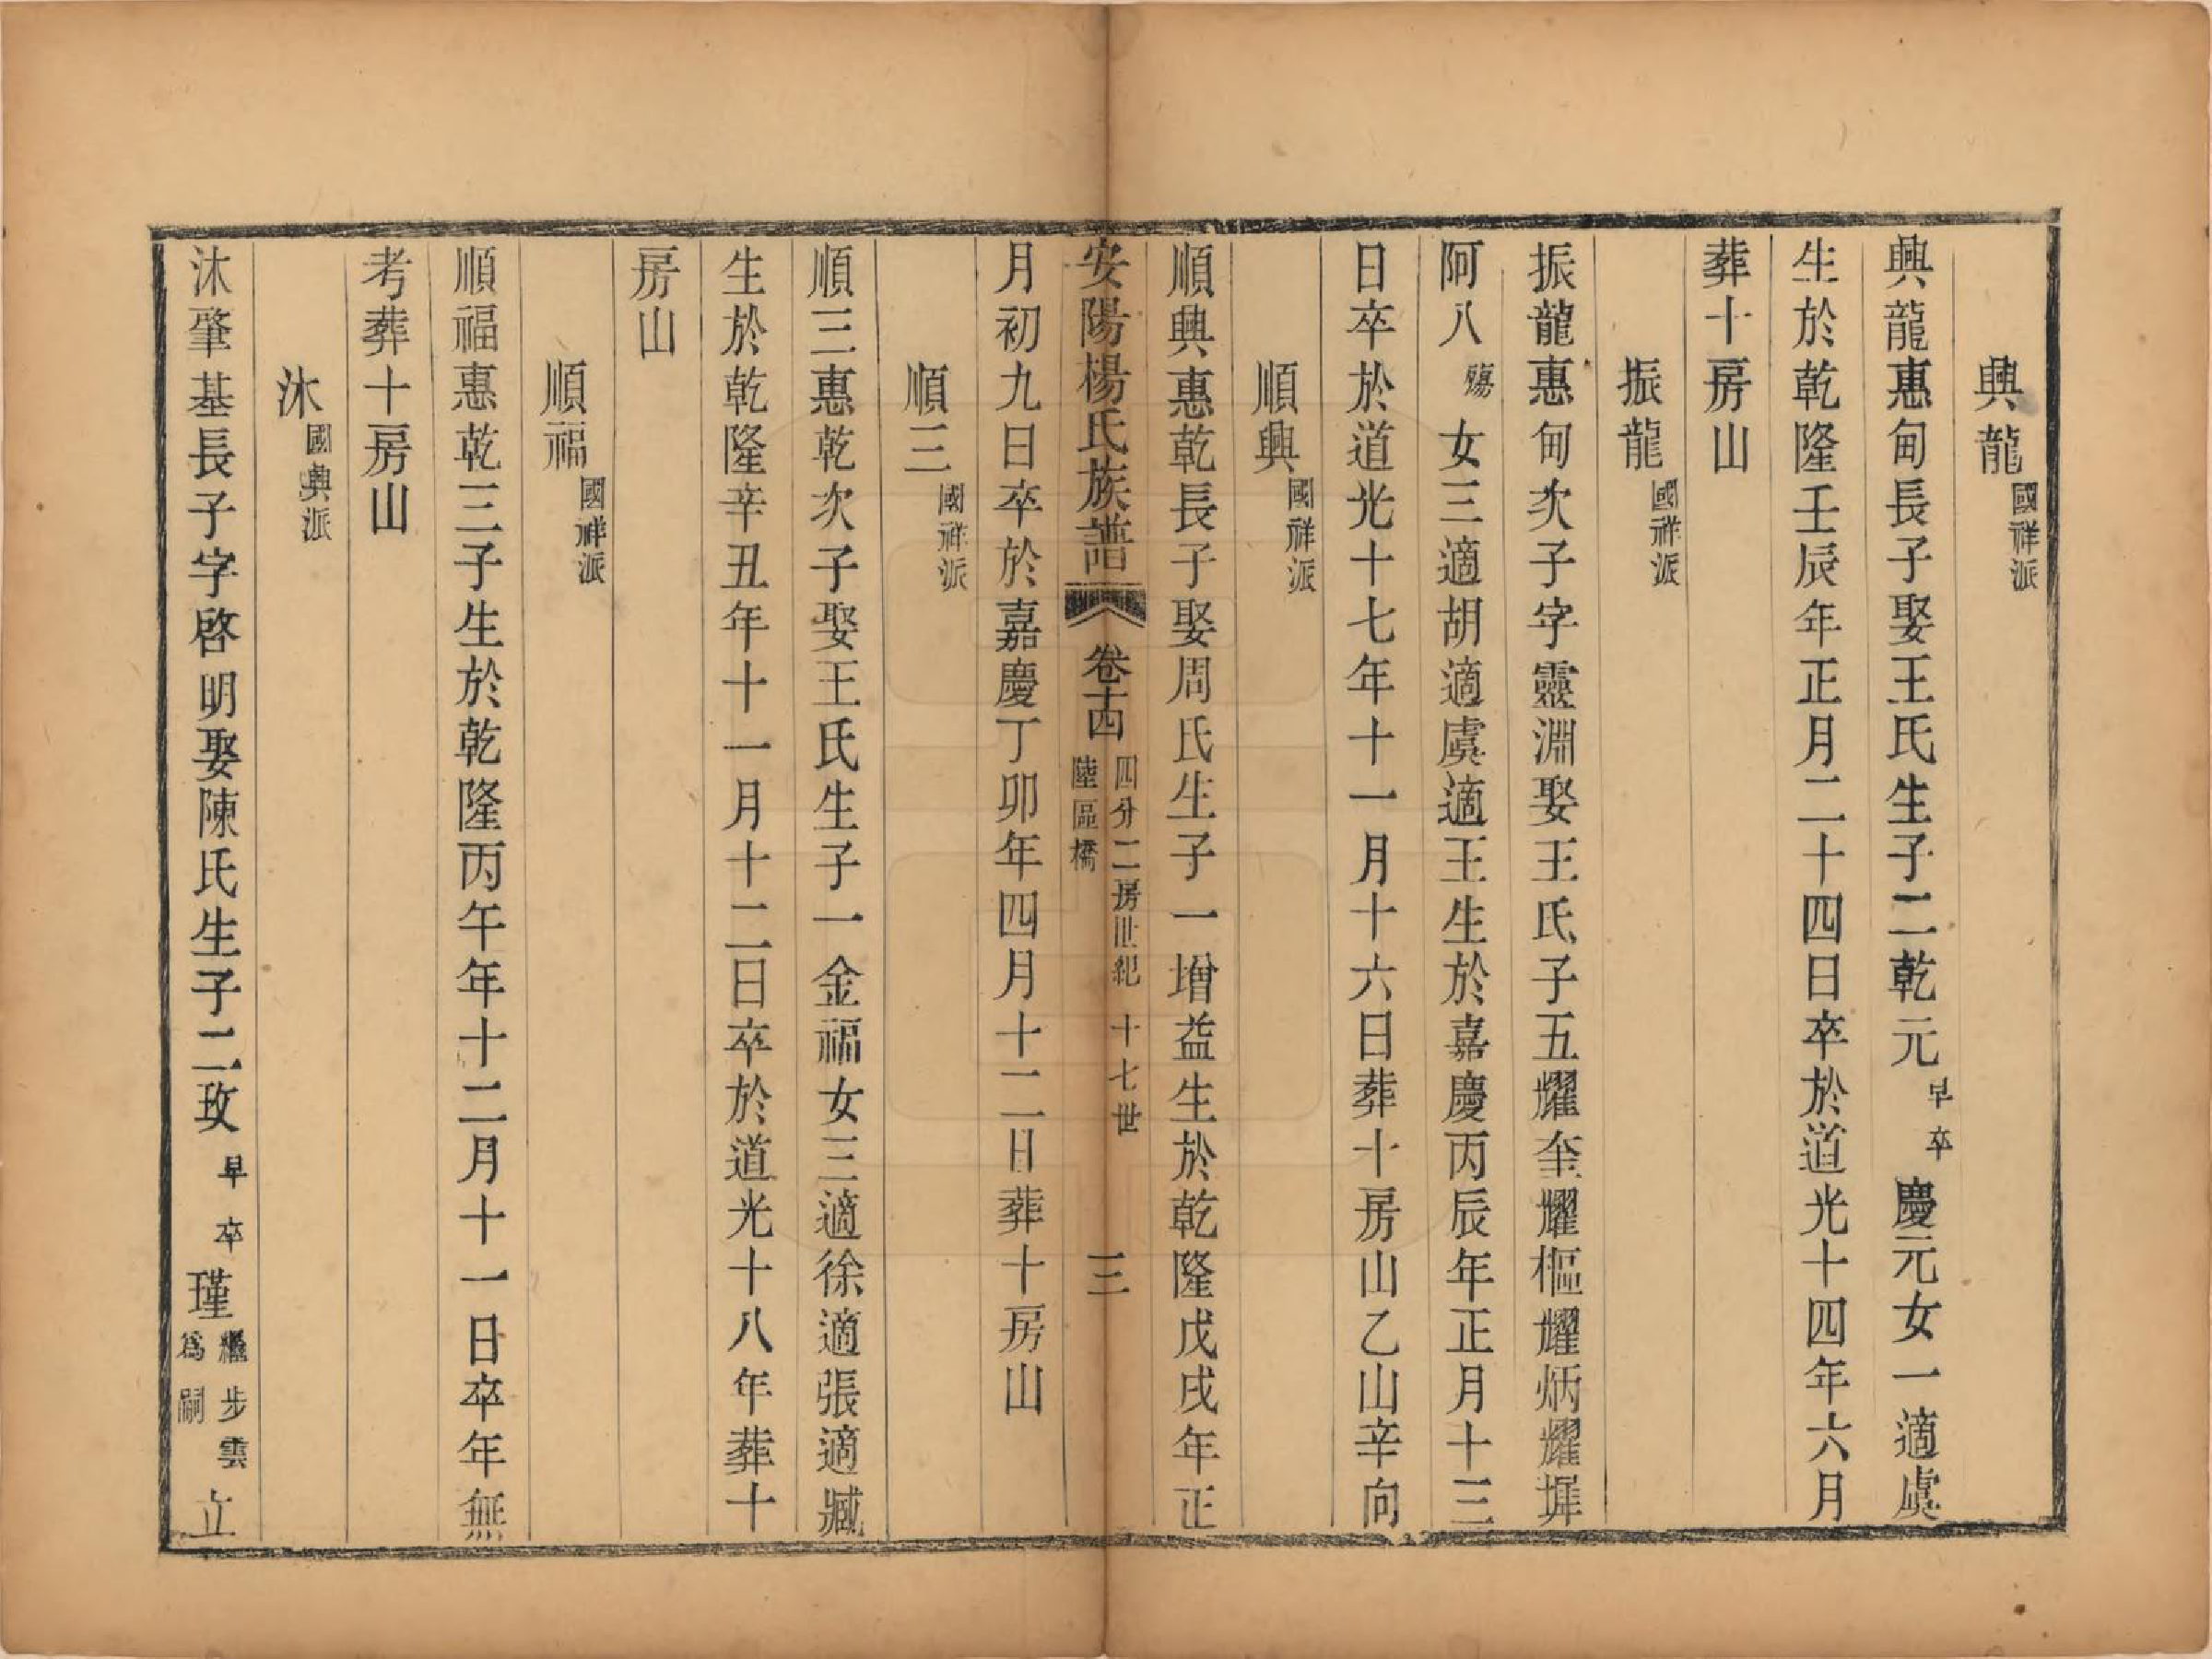 興龍國祥派
興龍惠甸長子娶王氏生子二乾元早卒慶元女一適虞
生於乾隆壬辰年正月二十四日卒於道光十四年六月
葬十房山
振龍國祥派
振龍惠甸次子字靈淵娶王氏子五耀奎耀樞耀炳耀墀
阿八殤女三適胡適虞適王生於嘉慶丙辰年正月十三
日卒於道光十七年十一月十六日葬十房山乙山辛向
順興國祥派
順興惠乾長子娶周氏生子一增益生於乾隆戊戌年正
安陽楊氏族譜 卷十四 四分二房世紀 十七世 陸區橋 三
月初九日卒於嘉慶丁卯年四月十二日葬十房山
順三國祥派
順三惠乾次子娶王氏生子一金福女三適徐適張適臧
生於乾隆辛丑年十一月十二日卒於道光十八年葬十
房山
順福國祥派
順福惠乾三子生於乾隆丙午年十二月十一日卒年無
考葬十房山
沐國興派
沐肇基長子字啓明娶陳氏生子二玫早卒瑾繼步雲爲嗣立